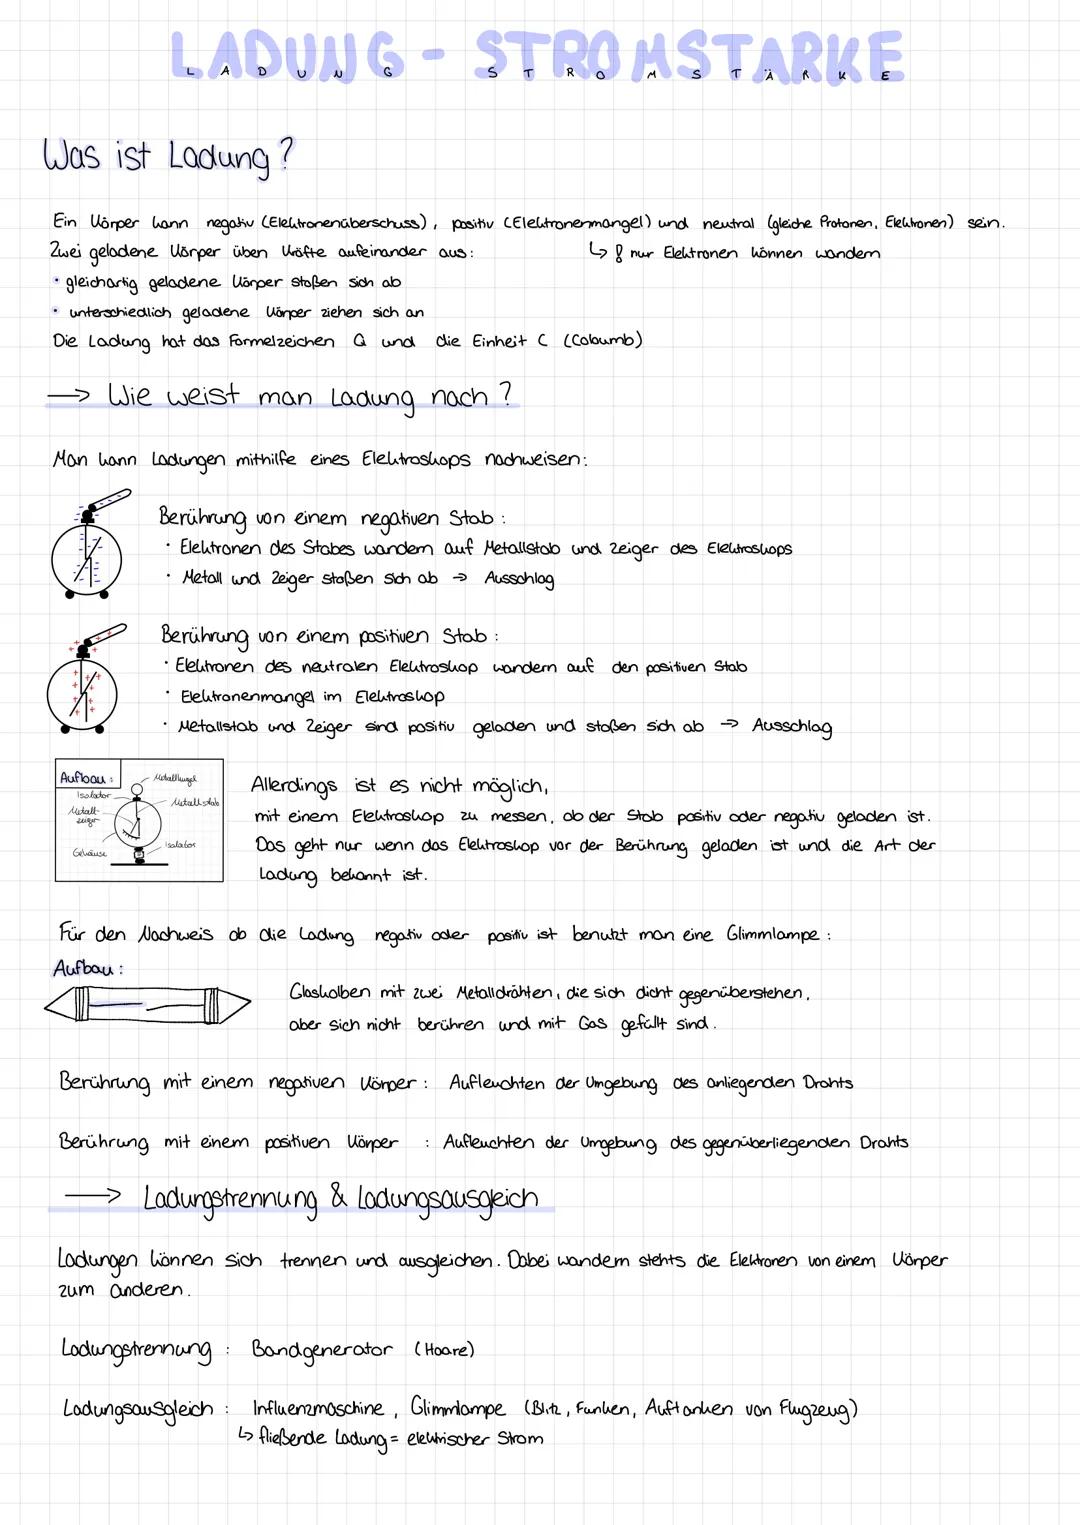 LADUNG - STROMSTÄRKE
LADUNG STROMSTÄRKE
Was ist Ladung?
Ein Körper kann negativ (Elektronenüberschuss), positiv (Elektronenmangel) und neutral (gleiche Protonen, Elektronen) sein.
Zwei geladene Körper üben Kräfte aufeinander aus:
↳ ! nur Elektronen können wandern
• gleichartig geladene Körper stoßen sich ab
• unterschiedlich geladene Körper ziehen sich an
Die Ladung hat das Formelzeichen Q und die Einheit C (Coloumb)
→ Wie weist man Ladung nach?
Man kann Ladungen mithilfe eines Elektroskops nachweisen:
Berührung von einem negativen Stab:
• Elektronen des Stabes wandern auf Metallstab und Zeiger des Elektroskops
• Metall und Zeiger stoßen sich ab → Ausschlag
Berührung von einem positiven Stab:
• Elektronen des neutralen Elektroskop wandern auf den positiven Stab
• Elektronenmangel im Elektroskop
• Metallstab und Zeiger sind positiv geladen und stoßen sich ab → Ausschlag
Aufbau:
Metallkugel
Isolator
Metallstab
Metall-
zeiger
Isolator
Gehäuse
Allerdings ist es nicht möglich,
mit einem Elektroskop zu messen, ob der Stab positiv oder negativ geladen ist.
Das geht nur wenn das Elektroskop vor der Berührung geladen ist und die Art der
Ladung bekannt ist.
Für den Nachweis ob die Ladung negativ oder positiv ist benutzt man eine Glimmlampe:
Aufbau:
Glaskolben mit zwei Metalldrähten, die sich dicht gegenüberstehen,
aber sich nicht berühren und mit Gas gefüllt sind.
Berührung mit einem negativen Körper: Aufleuchten der Umgebung des anliegenden Drahts
Berührung mit einem positiven Körper : Aufleuchten der Umgebung des gegenüberliegenden Drahts
→ Ladungstrennung & Ladungsausgleich
Ladungen können sich trennen und ausgleichen. Dabei wandern stehts die Elektronen von einem Körper
zum anderen.
Ladungstrennung: Bandgenerator (Haare)
Ladungsausgleich: Influenzmaschine, Glimmlampe (Blitz, Funken, Auftanken von Flugzeug)
↳ fließende Ladung = elektrischer Strom